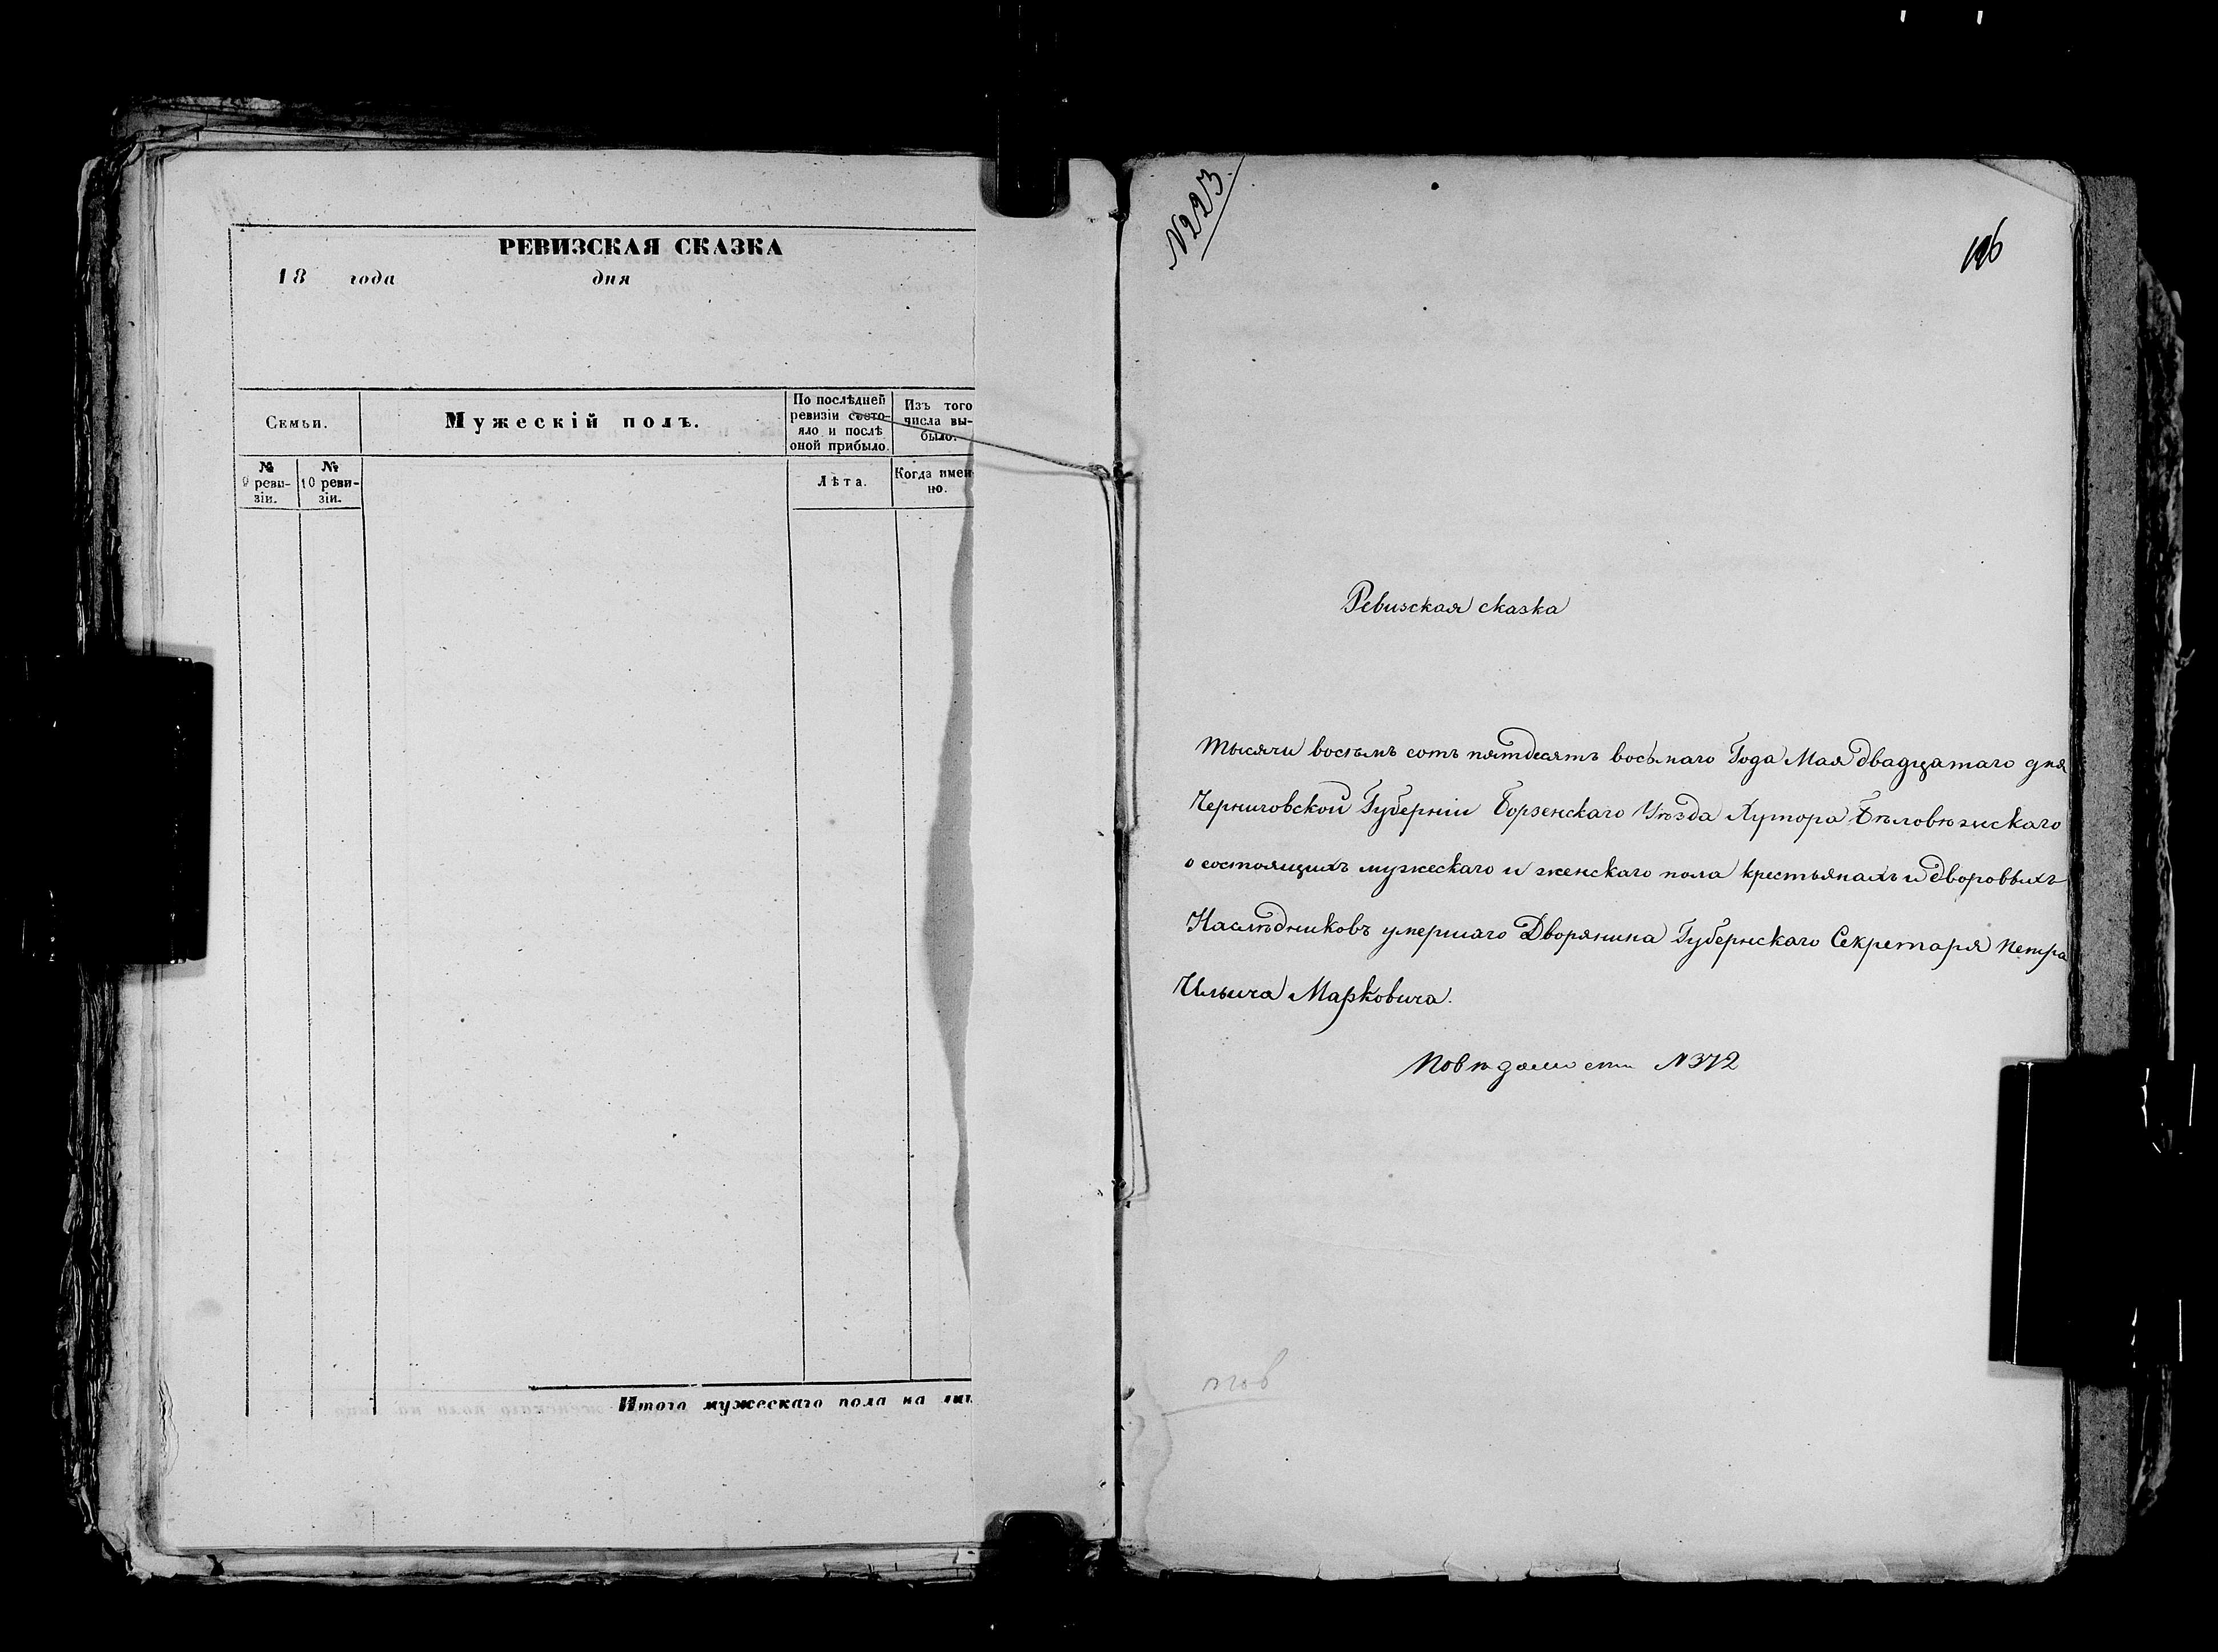 РЕВИЗСКАЯ СКАЗКА
18 года дня
Семьи.
Мужескій полъ.
По послѣдней
ревизіи состо-
яло и послѣ
оной прибыло.
Изъ того
числа вы-
было.
№
9 реви-
зіи.
№
10 реви-
зіи.
Лѣта.
Когда имен-
но.
Итого мужескаго пола на
N223.
Ревизская сказка
Тысячи восемь сотъ пятдесятъ восьмаго Года Мая двадцатаго дня
Черниговской Губерніи Борзенскаго Уѣзда Хутора Бѣловѣжскаго
о состоящихъ мужескаго и женскаго пола крестьянахъ и дворовыхъ
Наслѣдниковъ умершаго Дворянина Губернскаго Секретаря Петра
Ильича Марковича.
По вѣдомости N372